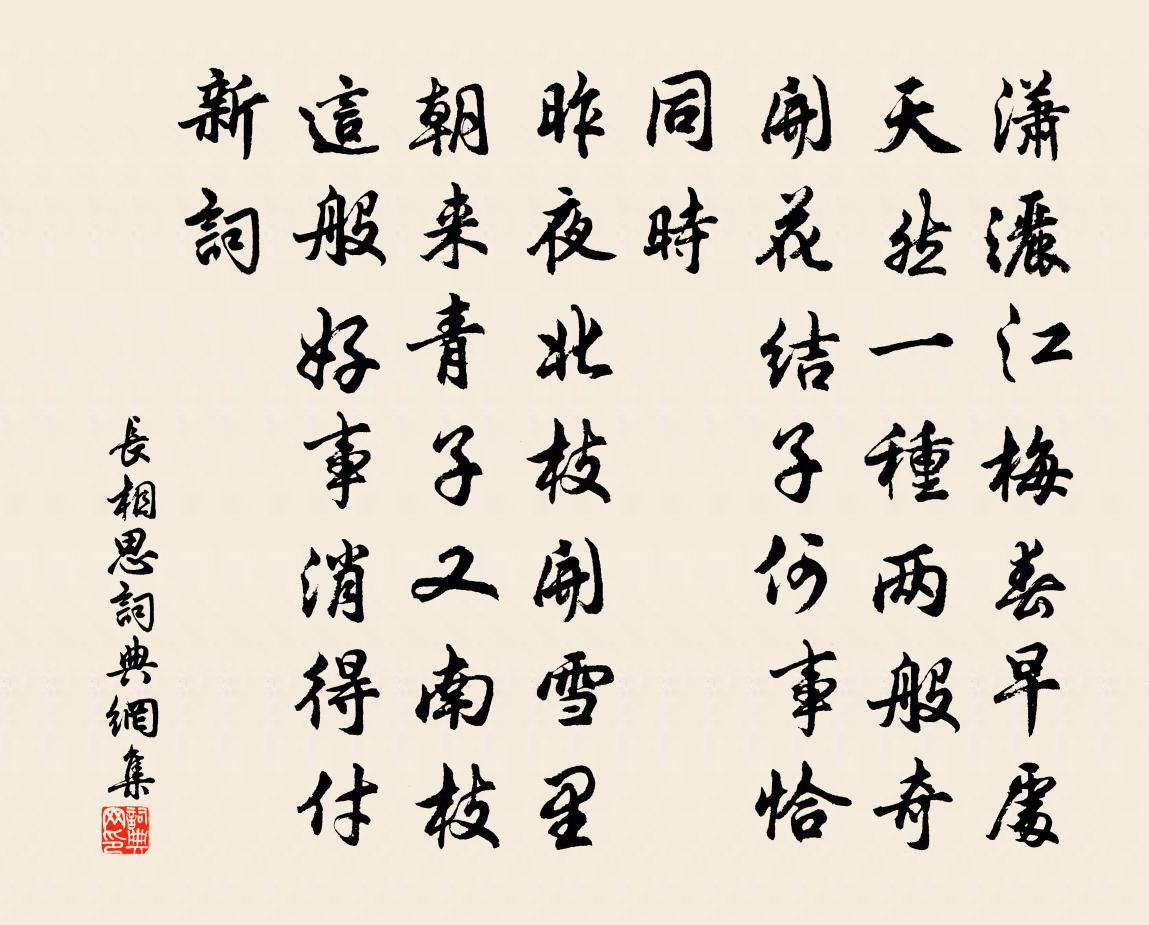 瀟灑江梅春早處
天然一種两般奇
開花结子何事恰
同時
昨夜北枝開雪里
朝来青子又南枝
這般好事消得付
新詞
長相思詞典網集
詞典网印